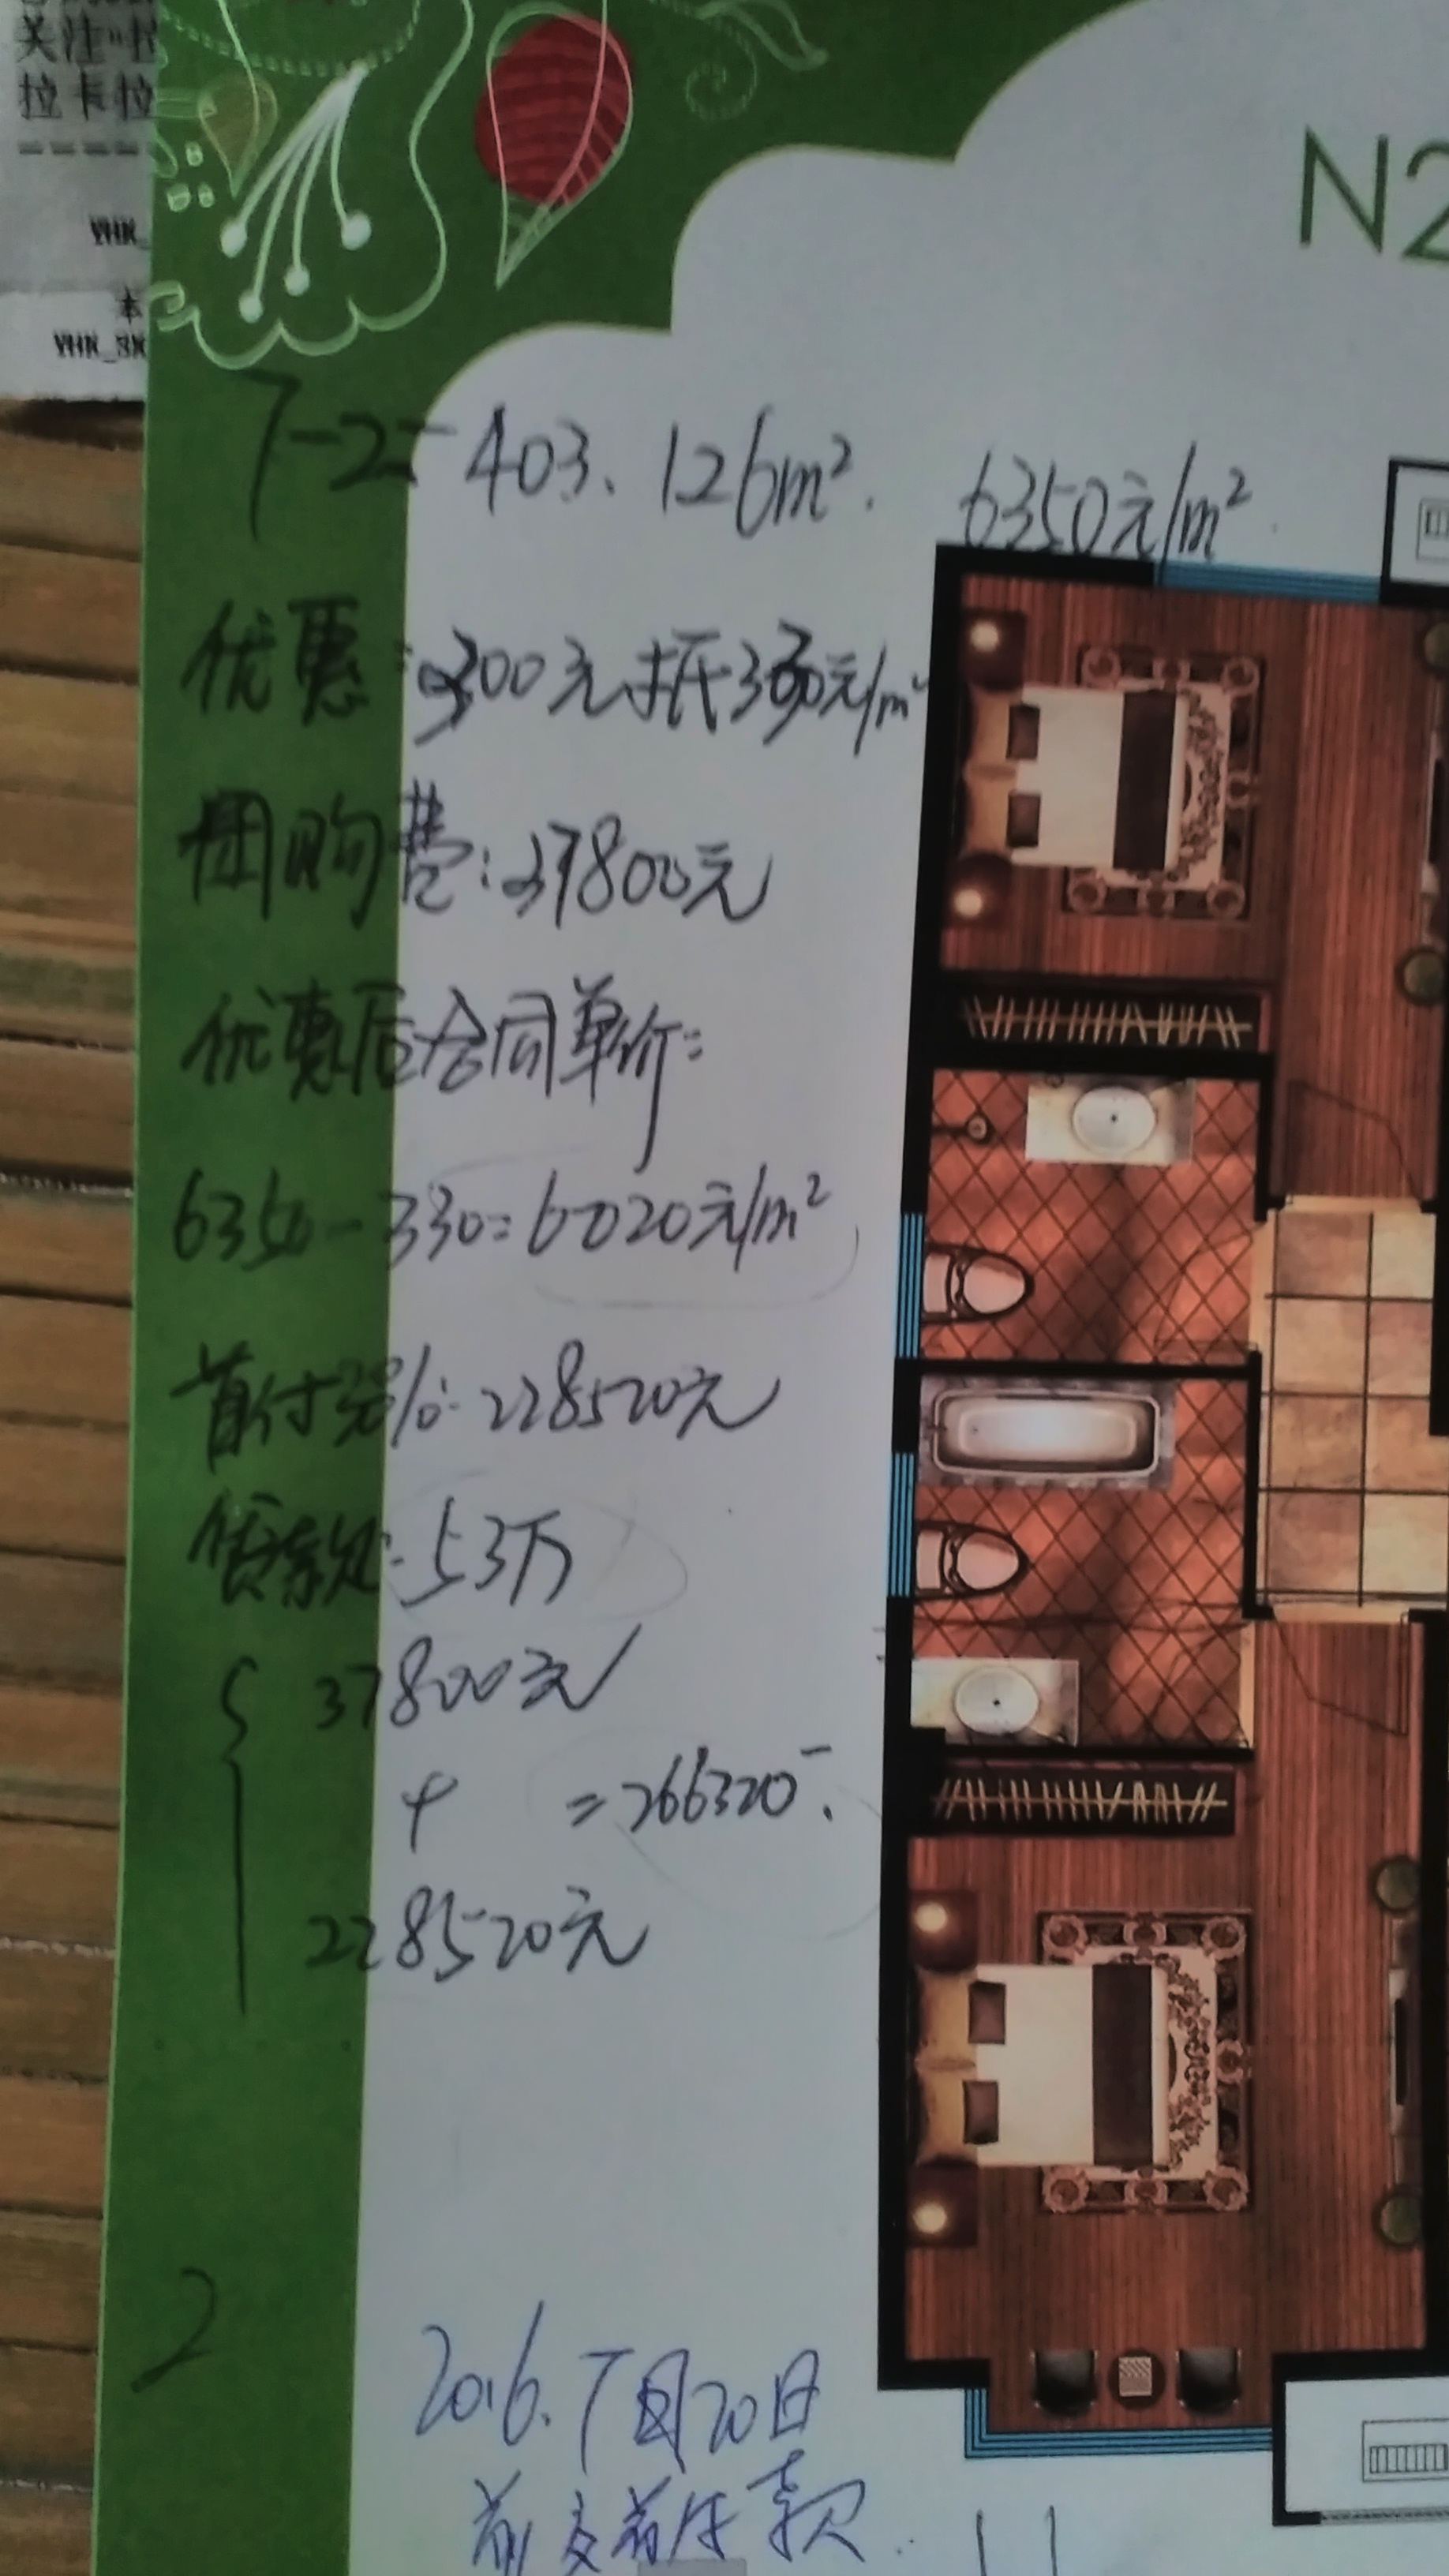 关注"拉
拉卡拉
----
YHK_
本
YHK_SK
N2
7-2-403. 126m². 6350元/m²
优惠:300元抵330元/m²
团购费:37800元
优惠后合同单价:
6350-330=6020元/m²
首付30%:228520元
贷款处:53万
37800元
+ =266320
228520元
2
2016.7月20日
前交首付款.